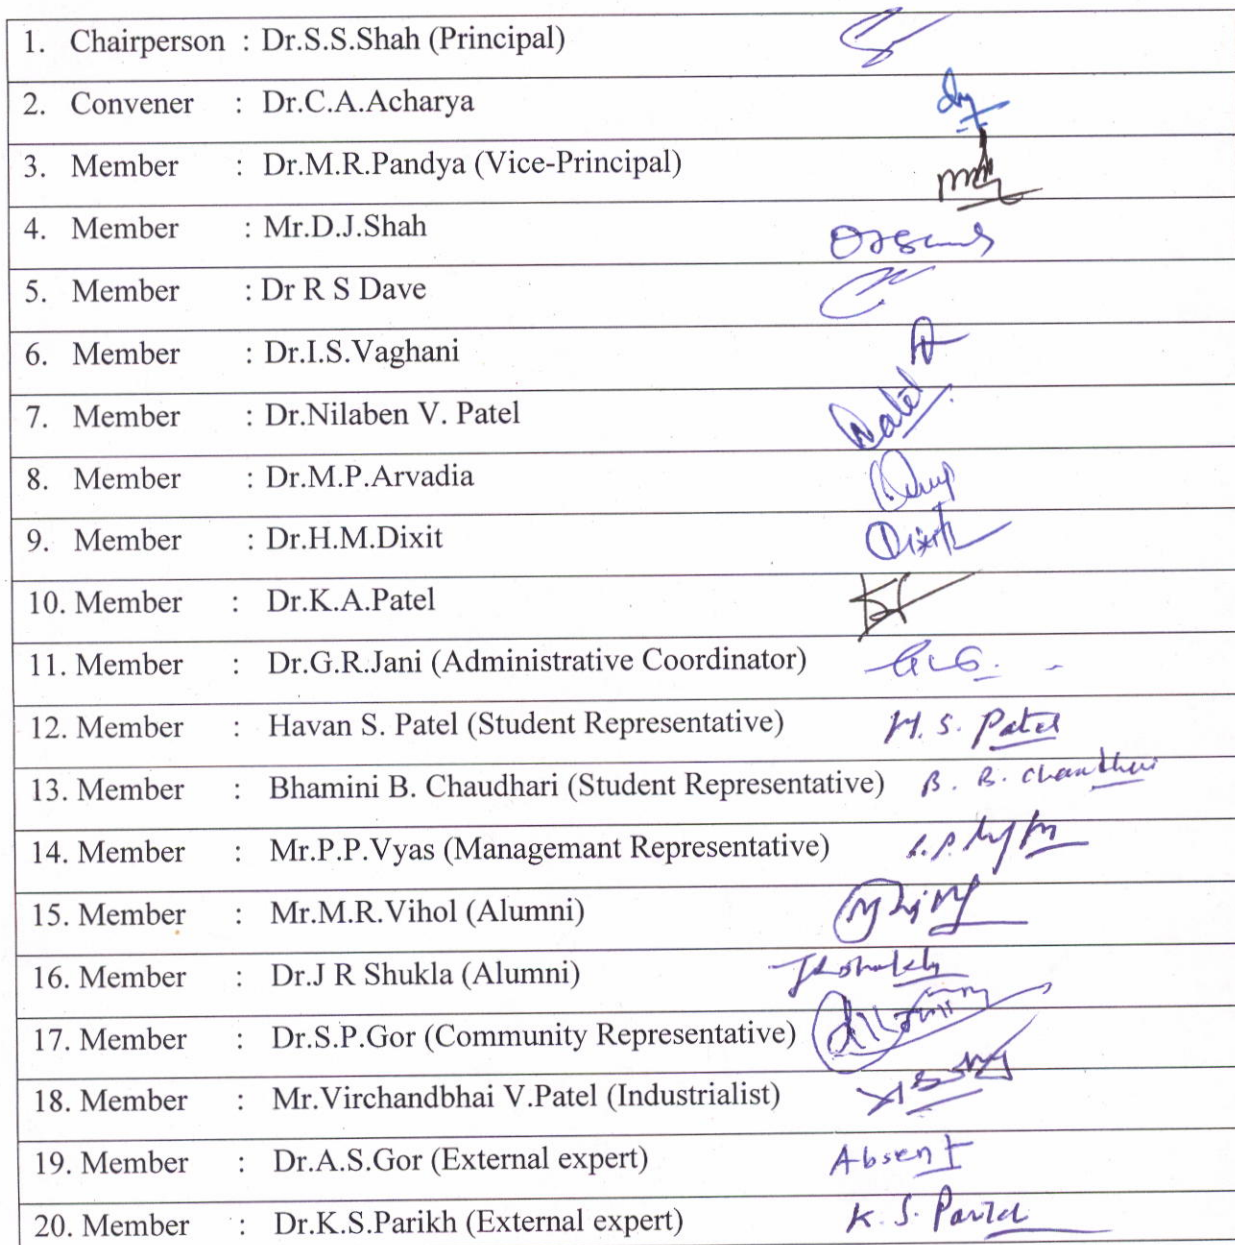 1. Chairperson : Dr.S.S.Shah (Principal)
2. Convener : Dr.C.A.Acharya
3. Member : Dr.M.R.Pandya (Vice-Principal)
4. Member : Mr.D.J.Shah
5. Member : Dr R S Dave
6. Member : Dr.I.S.Vaghani
7. Member : Dr.Nilaben V. Patel Patel
8. Member : Dr.M.P.Arvadia
9. Member : Dr.H.M.Dixit Dixit
10. Member : Dr.K.A.Patel
11. Member : Dr.G.R.Jani (Administrative Coordinator)
12. Member : Havan S. Patel (Student Representative) H. S. Patel
13. Member : Bhamini B. Chaudhari (Student Representative) B. B. Chaudhari
14. Member : Mr.P.P.Vyas (Managemant Representative)
15. Member : Mr.M.R.Vihol (Alumni)
16. Member : Dr.J R Shukla (Alumni)
17. Member : Dr.S.P.Gor (Community Representative)
18. Member : Mr.Virchandbhai V.Patel (Industrialist)
19. Member : Dr.A.S.Gor (External expert) Absent
20. Member : Dr.K.S.Parikh (External expert) K. S. Parikh